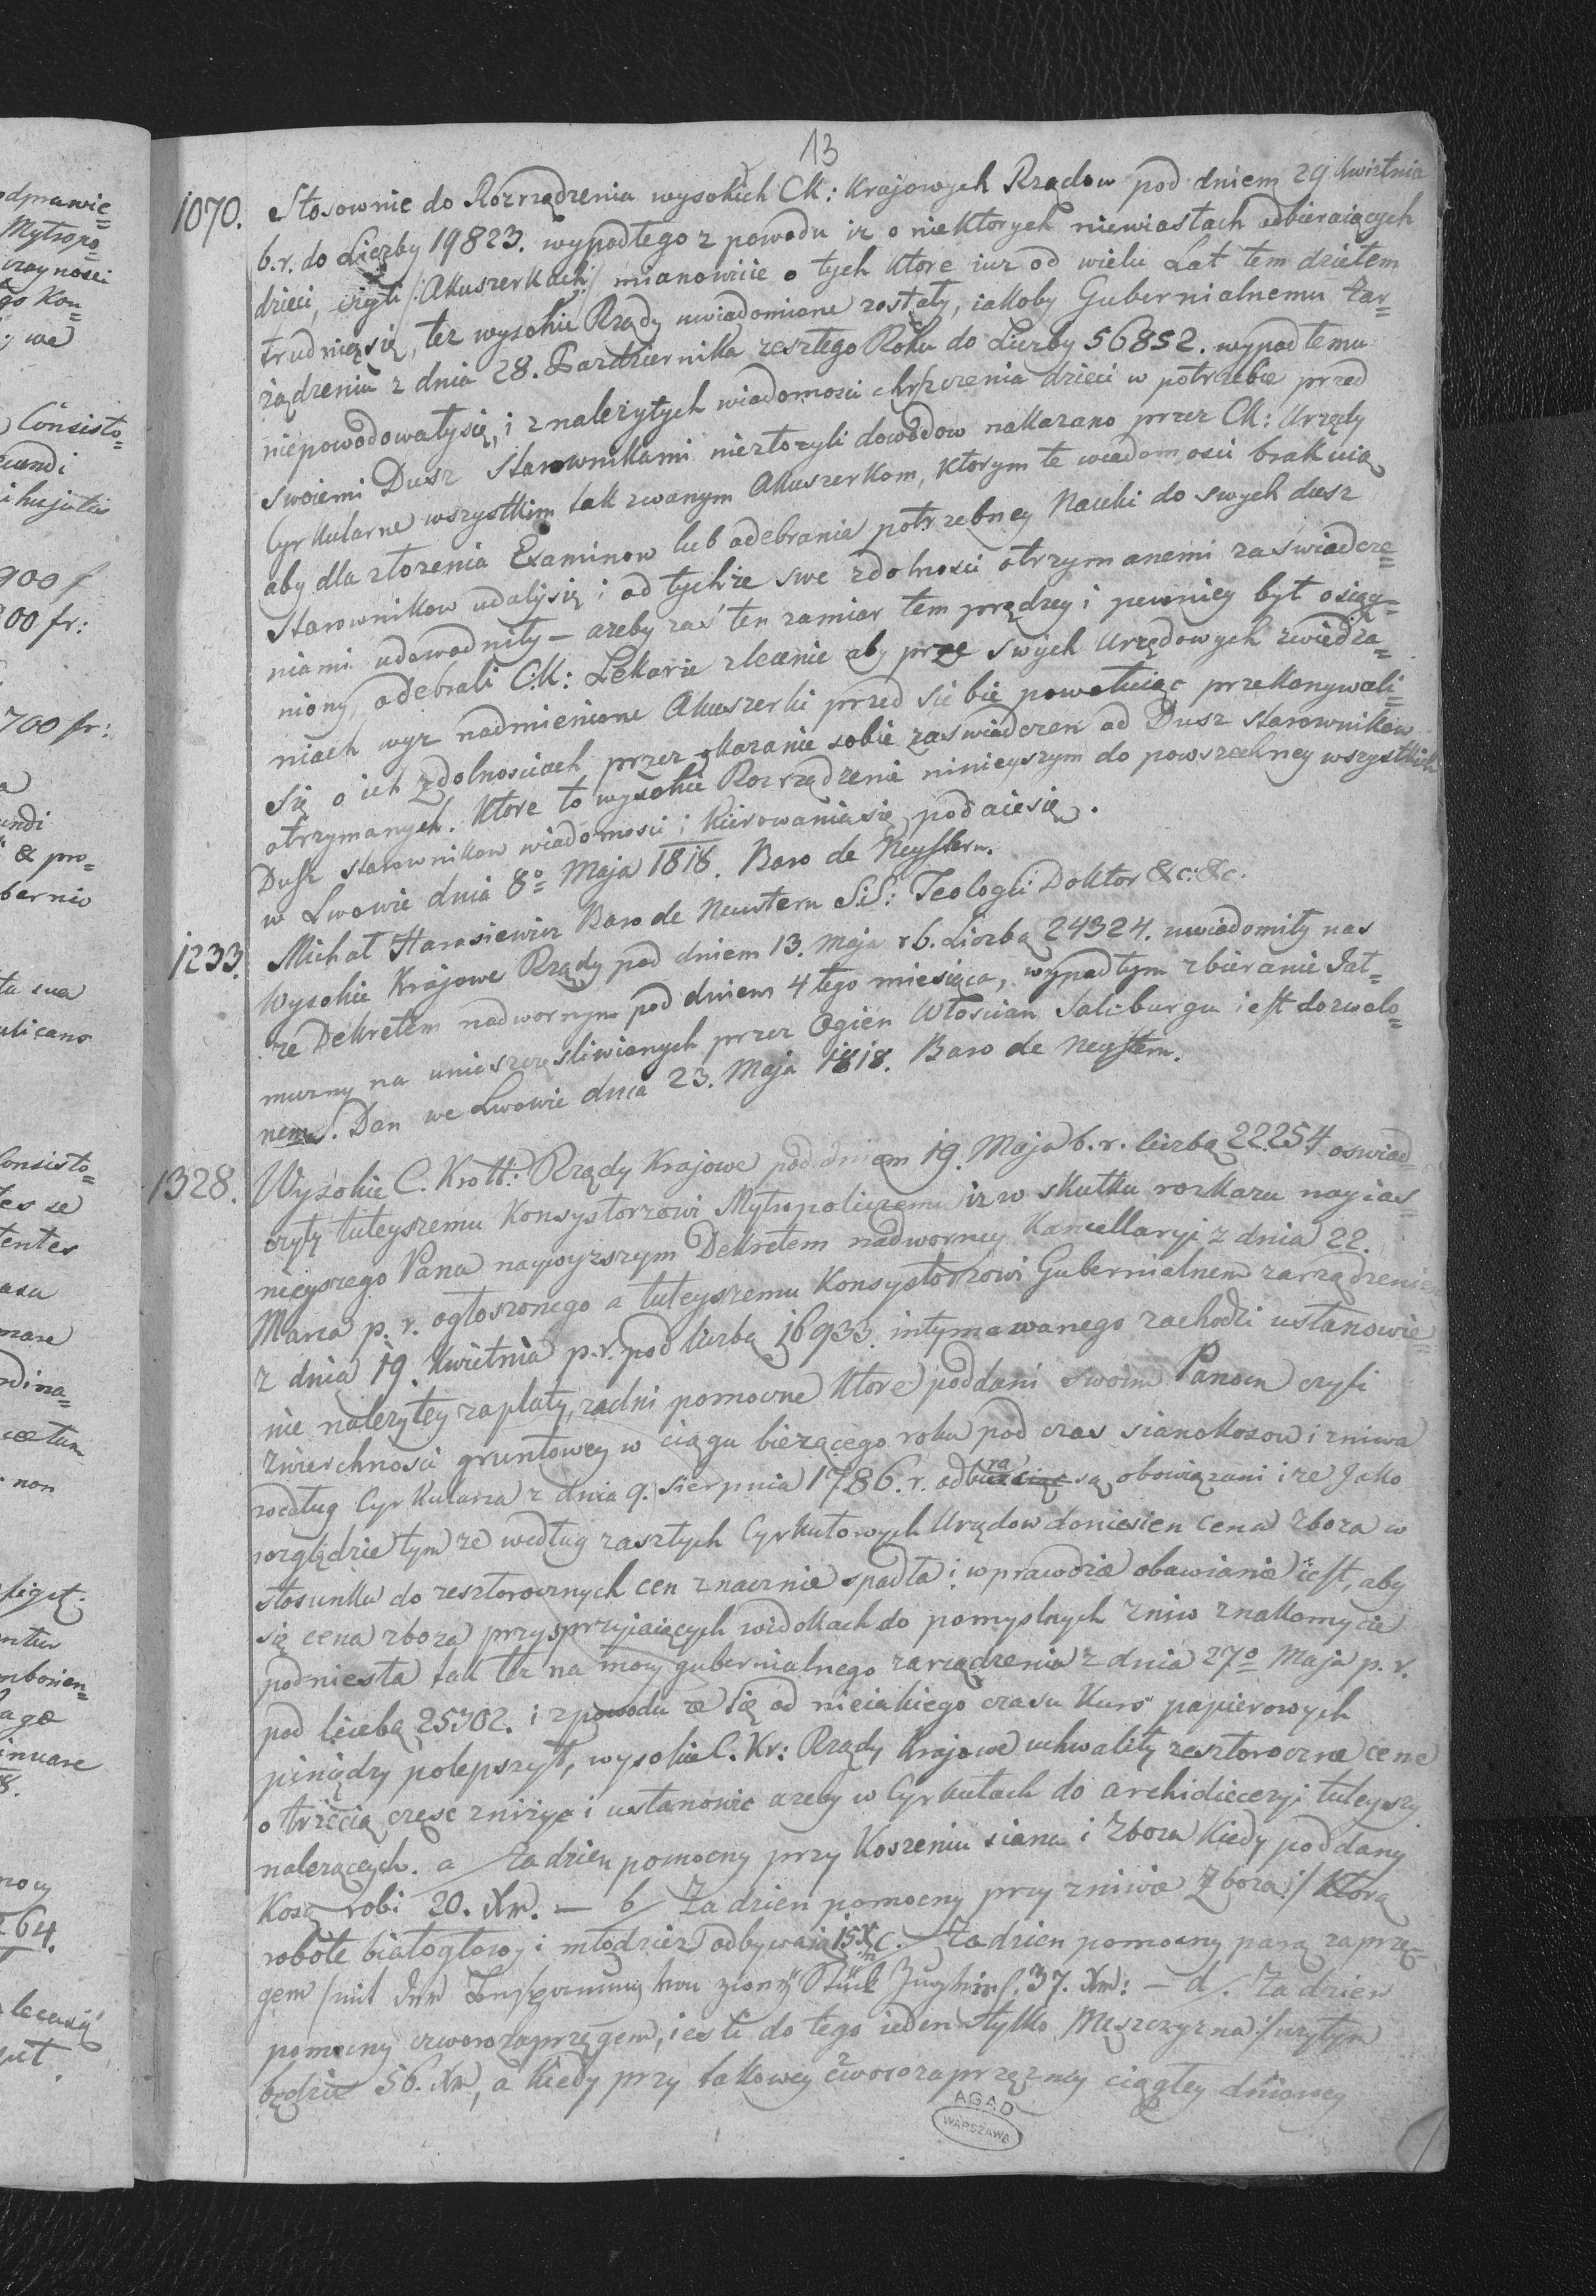 13
1070. Stosownie do Rozrządzenia wysokich CK: Krajowych Rządow pod dniem 29 Kwietnia
b.r. do Liczby 19823. wypadłego z powodu iz o niektorych niewiastach odbieraiących
dzieci, czyli /:Akuszerkach:/ mianowicie o tych ktore iuz od wielu Lat tem dziełem
trudnią się, tez wysokie Rządy uwiadomione zostały, iakoby Gubernialnemu Zar=
ządzeniu z dnia 28. Pazdziernika zeszłego Roku do Liczby 56852. wypadłemu
niepowodowały się, i z nalezytych wiadomosci chrzczenia dzieci w potrzebie przed
swoiemi Dusz Starownikami niezłozyli dowodow nakazano przez CK: Urzędy
Cyrkularne wszystkim tak zwanym Akuszerkom, ktorym te wiadomosci brakuią
aby dla złozenia Examinow lub odebrania potrzebney Nauki do swych dusz
Starownikow udały się i od tychże swe zdolnosci otrzymanemi zaswiadcze=
niami udowodniły – azeby zaś ten zamiar tem prędzey i pewniey był osiąg=
niony, odebrali C.K: Lekarze zlecenie aby prze swych Urzędowych zwiedza=
niach wyz nadmienione Akuszerki przed siebie powołuiąc przekonywali
się o ich zdolnosciach przez okazanie sobie zaswiadczen od Dusz starownikow
otrzymanych. Ktore to wysokie Rozrządzenie ninieyszym do powszechney wszystkich
Dusz starownikow wiadomosci i kierowania się podaie się.
w Lwowie dnia 8o Maja 1818. Baro de Neystern.
Michał Harasiewicz Baro de Neustern S.S: Teologii Doktor &c:&c.
1233. Wysokie Krajowe Rządy pod dniem 13. Maja r b. Liczbą 24324. uwiadomiły nas
ze Dekretem nadwornym pod dniem 4 tego miesiąca, wypadłym zbieranie Jał=
muzny na unieszczesliwionych przez Ogień Włoscian Salcburgu iest dozwolo=
nem. Dan we Lwowie dnia 23. Maja 1818. Baro de Neystern.
1328. Wysokie C. Krolł: Rządy Krajowe pod dniem 19. Maja b.r. liczbą 22254 oswiad=
czyły tuteyszemu Konsystorzowi Mytropolicznemu iz w skutku rozkazu nayias=
nieyszego Pana naywyzszym Dekretem nadworney Kancellaryi z dnia 22.
Marca p.r. ogłoszonego a tuteyszemu Konsystorzowi Gubernialnem zarządzeniem
z dnia 19. Kwietnia p.r. pod liczbą 16933. intymowanego zachodzi ustanowie=
nie nalezytey zapłaty, zadni pomocne ktore poddani swoim Panom czyli
zwierchnosci gruntowey w ciągu biezącego roku pod czas sianokosow i zniwa
według Cyrkularza z dnia 9. Sierpnia 1786. r. odbu są obowiązani i ze Jako
względzie tym ze według zaszłych Cyrkułowych Urzędow doniesien cena zboza w
stosunku do zeszłorocznych cen znacznie spadła i wprawdzie obawianie iest, aby
się cena zboza przy sprzyiaiących widokach do pomyslnych zniw znakomycie
podniesła tak tez na mocy gubernialnego zarządzenia z dnia 27o Maja p.r.
pod liczbą 25302. i z powodu ze się od nieiakiego czasu Kurs papierowych
pieniędzy polepszył, wysokie C. Kr: Rządy Krajowe uchwaliły zeszłoroczne cene
o trzecią częsc znizyc i ustanowic azeby w Cyrkułach do archidiecezyi tuteyszy
nalezących. a/ Za dzien pomocny przy Koszeniu siana i zboza Kiedy poddany
Kosą robi 20. Xr. – b/ Za dzien pomocny przy zniwie zboza:/ którą
robote białogłowy i młodziez odbywaią 15 Xr c. Za dzien pomocny parą zaprzę=
gem /mit 37. Xr: – d/. Za dzien
pomocny czworozaprzęgem, iesli do tego ieden tylko Męszczyzna:/uzytym
będzie 56. Xr, a kiedy przy takowey czworozaprzęzney ciągłey dniowey
AGAD
WARSZAWA